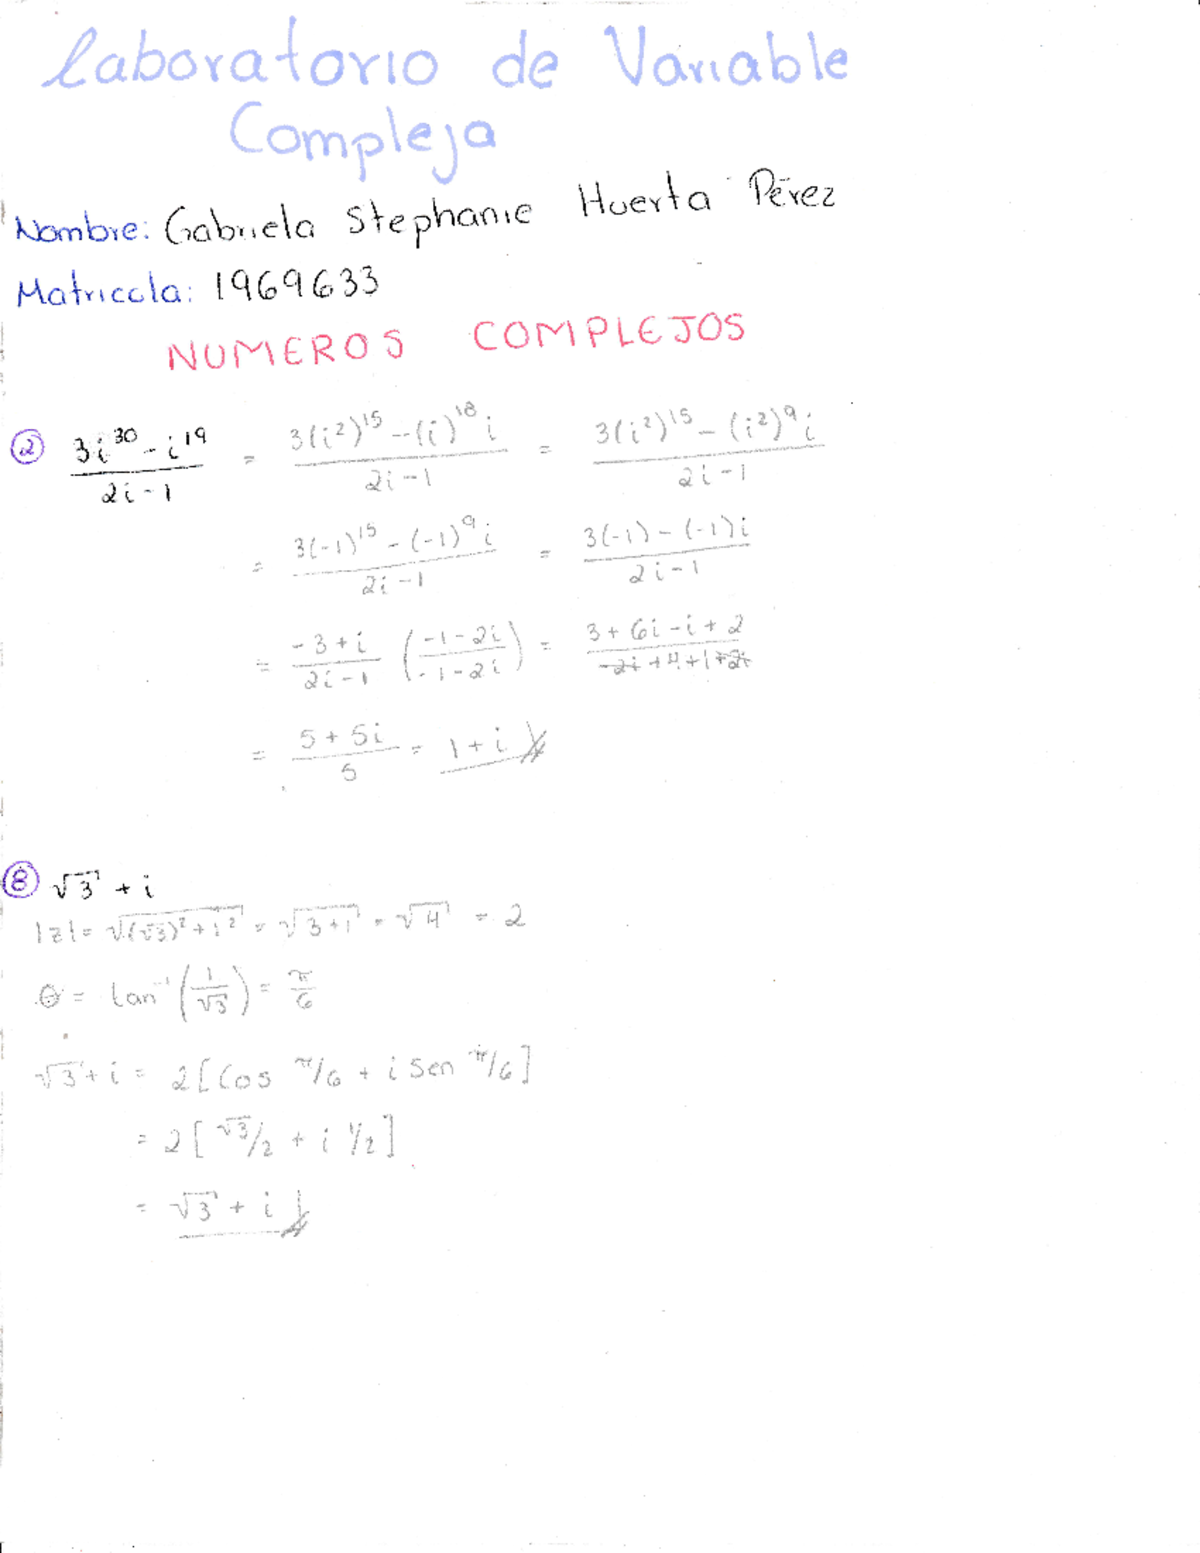 Laboratorio de Variable
Compleja
Nombre: Gabriela Stephanie Huerta Pérez
Matricula: 1969633
NUMEROS COMPLEJOS
② (3i^30 - i^19)/(2i-1) = (3(i²)^15 - (i)^18 i)/(2i-1) = (3(i²)^15 - (i²)^9 i)/(2i-1)
= (3(-1)^15 - (-1)^9 i)/(2i-1) = (3(-1) - (-1)i)/(2i-1)
= (-3+i)/(2i-1) ((-1-2i)/(-1-2i)) = (3+6i-i+2)/(-2i+4+1+2i)
= (5+5i)/5 = 1+i
⑧ √3 + i
|z| = √((√3)²+1²) = √(3+1) = √4 = 2
θ = tan⁻¹(1/√3) = π/6
√3+i = 2[Cos π/6 + i Sen π/6]
= 2[√3/2 + i 1/2]
= √3 + i